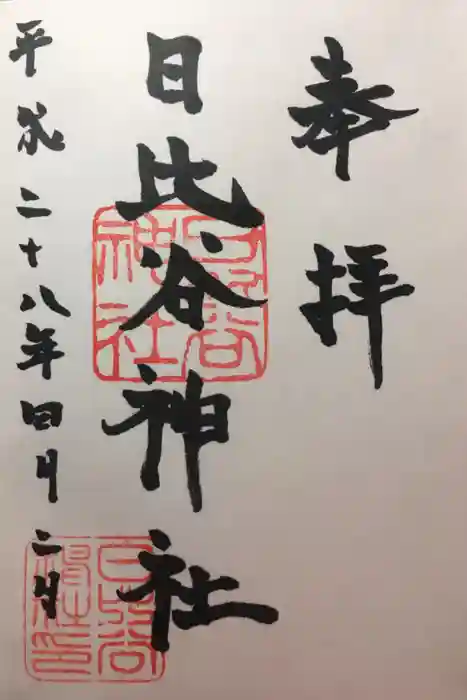 奉拝
日比谷神社
平成二十八年四月二日
日比谷神社